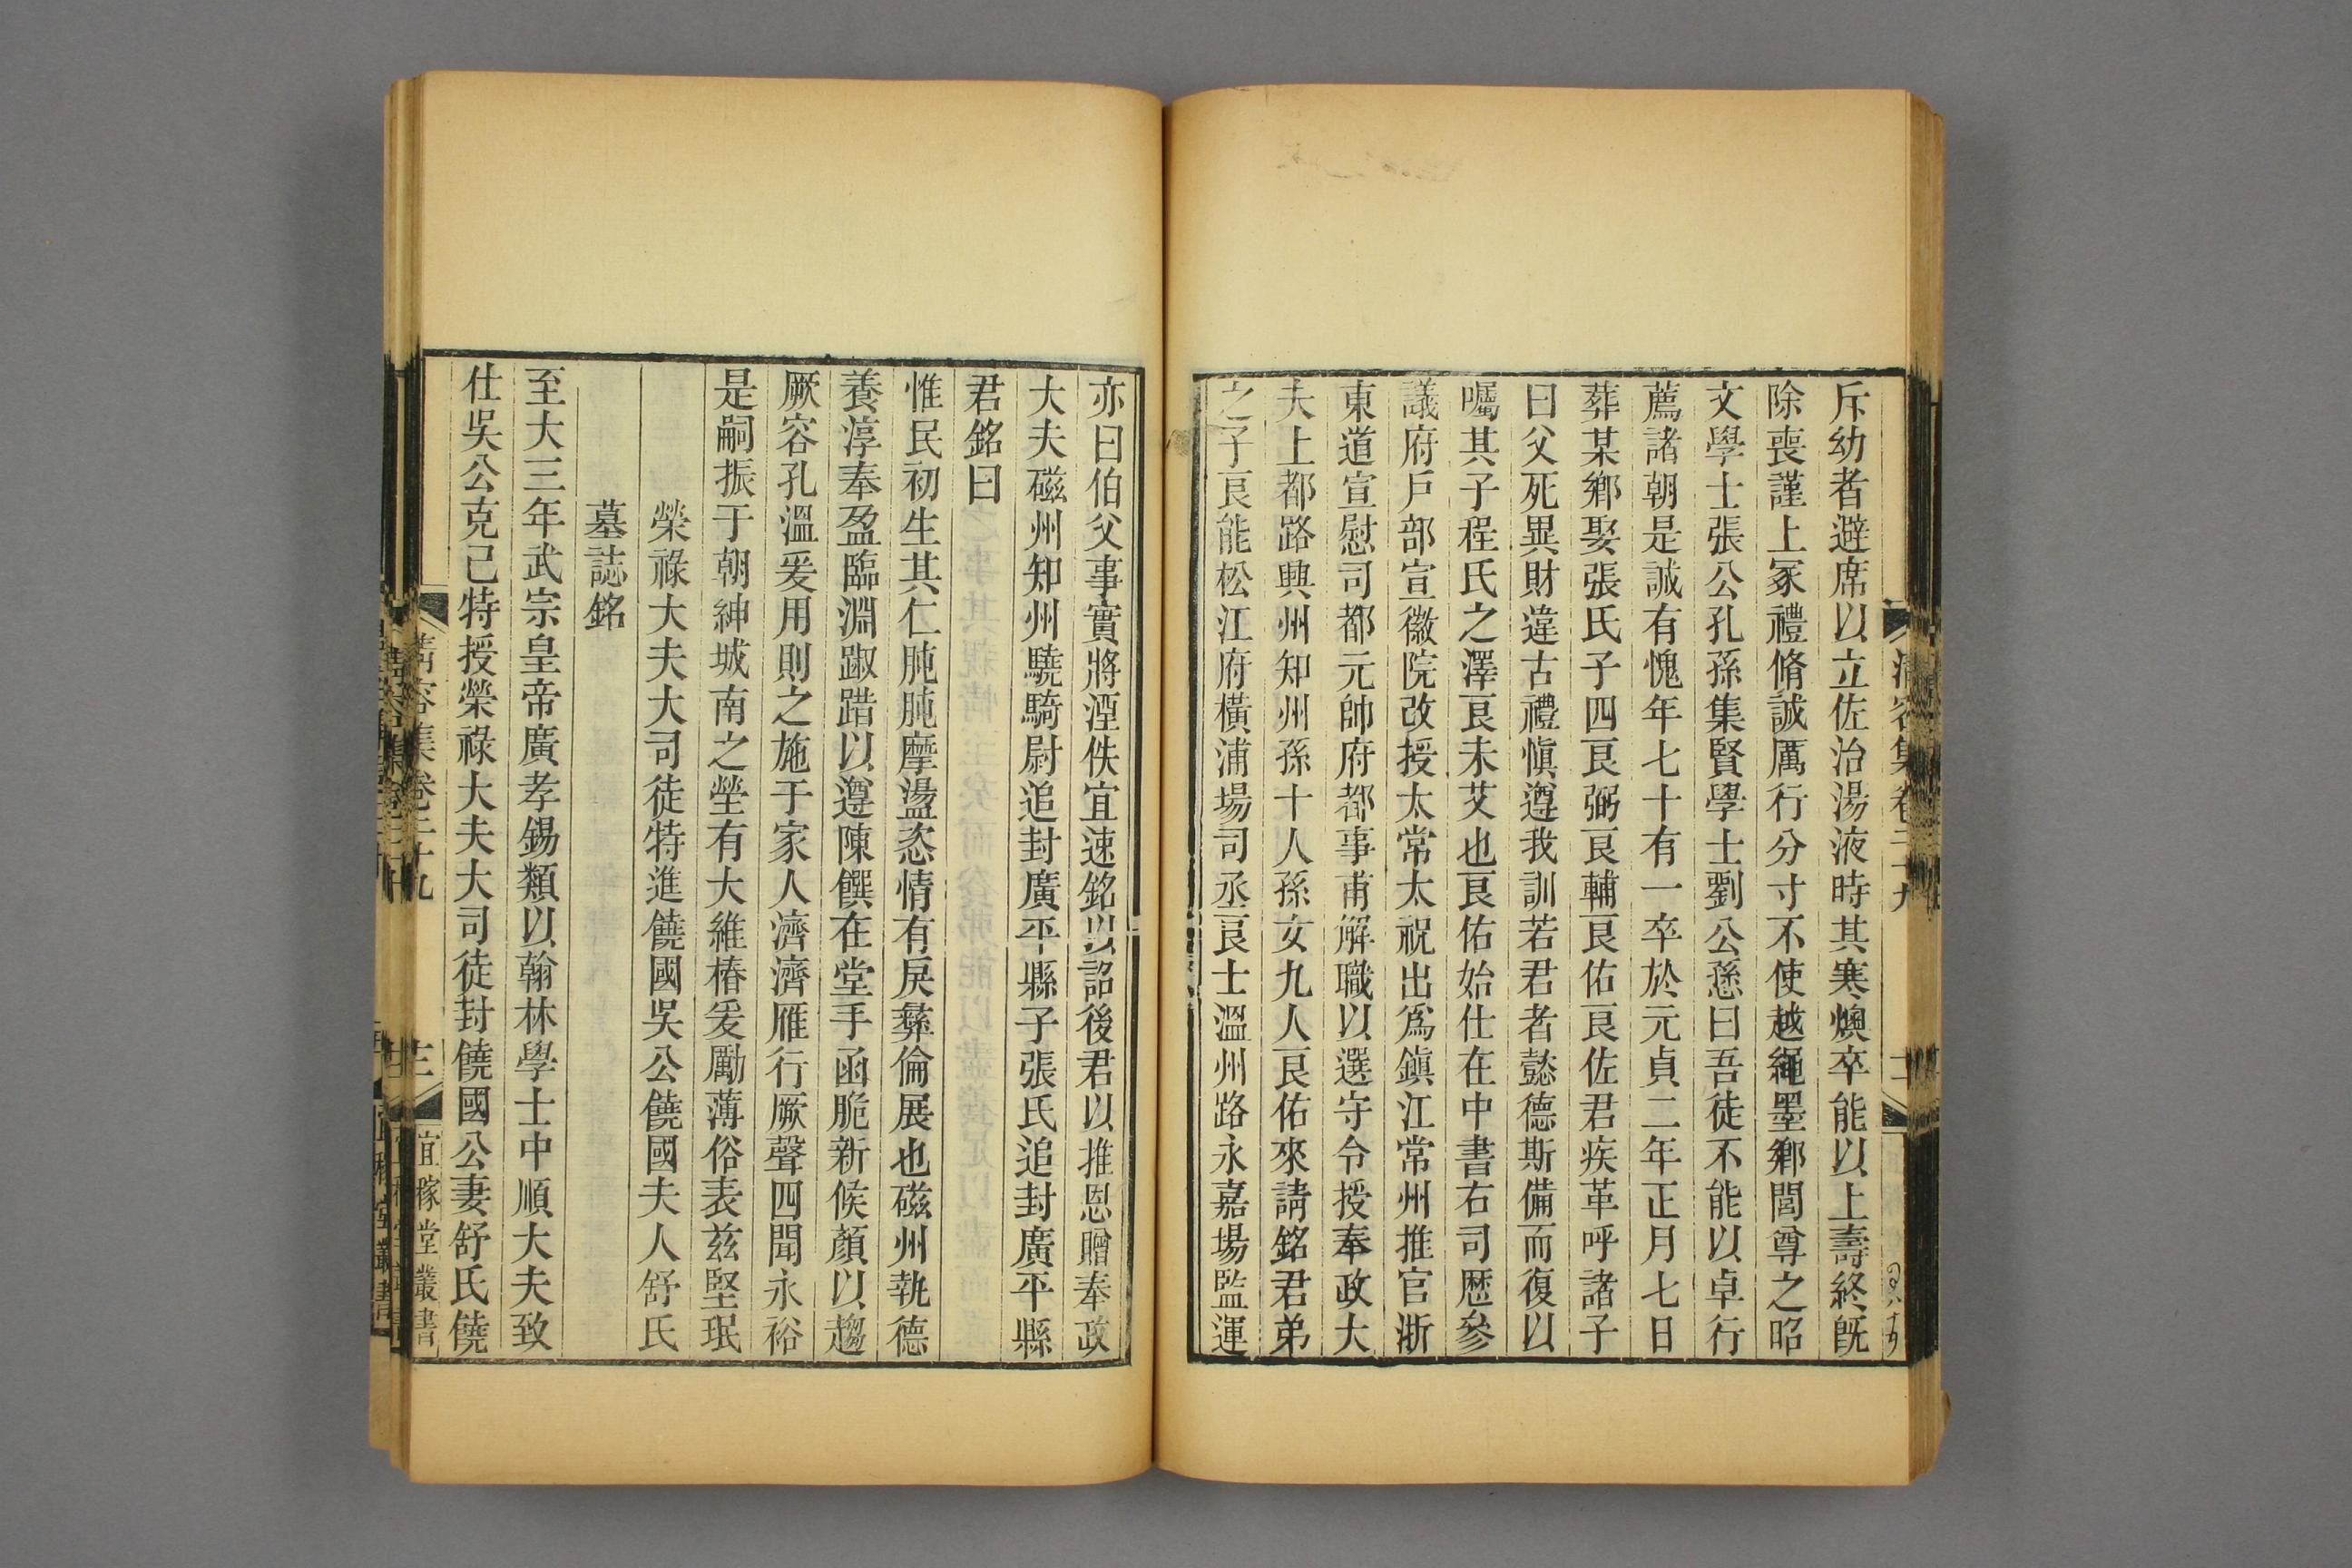 清容集卷二十九
斥幼者避席以立佐治湯液時其寒燠卒能以上壽終旣
除喪謹上冢禮脩誠厲行分寸不使越繩墨鄉閭尊之昭
文學士張公孔孫集賢學士劉公𢙀曰吾徒不能以卓行
薦諸朝是誠有愧年七十有一卒於元貞二年正月七日
葬某鄉娶張氏子四良弼良輔良佑良佐君疾革呼諸子
曰父死異財違古禮愼遵我訓若君者懿德斯備而復以
囑其子程氏之澤良未艾也良佑始仕在中書右司歷參
議府戶部宣徽院改授太常太祝出爲鎭江常州推官浙
東道宣慰司都元帥府都事甫解職以選守令授奉政大
夫上都路興州知州孫十人孫女九人良佑來請銘君弟
之子良能松江府橫浦場司丞良士溫州路永嘉場監運
亦曰伯父事實將湮佚宜速銘以詔後君以推恩贈奉政
大夫磁州知州驍騎尉追封廣平縣子張氏追封廣平縣
君銘曰
惟民初生其仁肫肫摩盪恣情有戾彝倫展也磁州執德
養淳奉盈臨淵踧踖以遵陳饌在堂手函脆新候顏以趨
厥容孔溫爰用則之施于家人濟濟雁行厥聲四聞永裕
是嗣振于朝紳城南之塋有大維椿爰勵薄俗表茲堅珉
榮祿大夫大司徒特進饒國吳公饒國夫人舒氏
墓誌銘
至大三年武宗皇帝廣孝錫類以翰林學士中順大夫致
仕吳公克己特授榮祿大夫大司徒封饒國公妻舒氏饒
清容集卷二十九
宜稼堂叢書